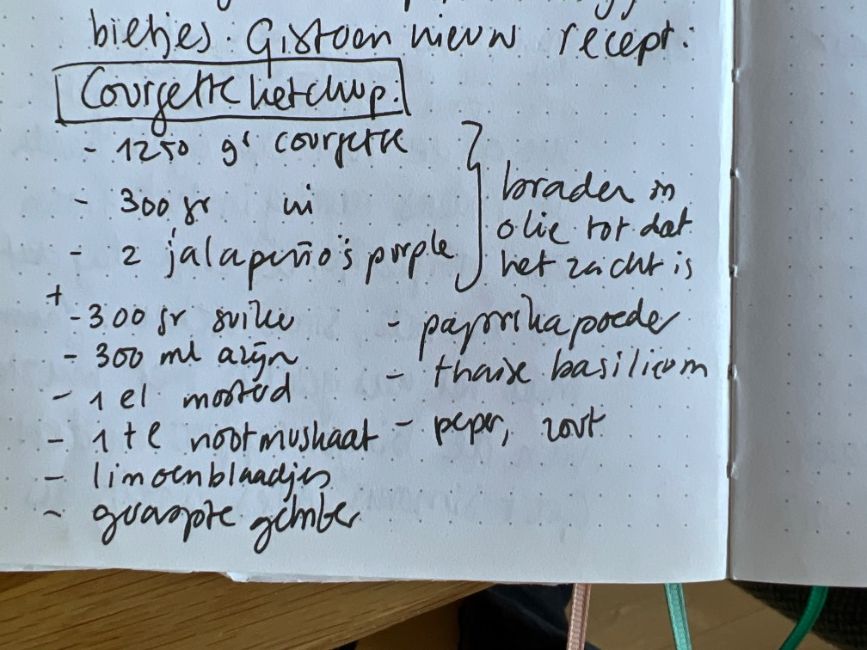 bietjes. Gistoen nieuw recept:
Courgette ketchup:
- 1250 gr courgette
- 300 gr ui
- 2 jalapeño's purple
braden in
olie tot dat
het zacht is
+
- 300 gr suiker
- 300 ml azijn
- 1 el mosterd
- 1 te nootmuskaat
- limoenblaadjes
- geraspte gember
- paprikapoeder
- thaise basilicum
- peper, zout